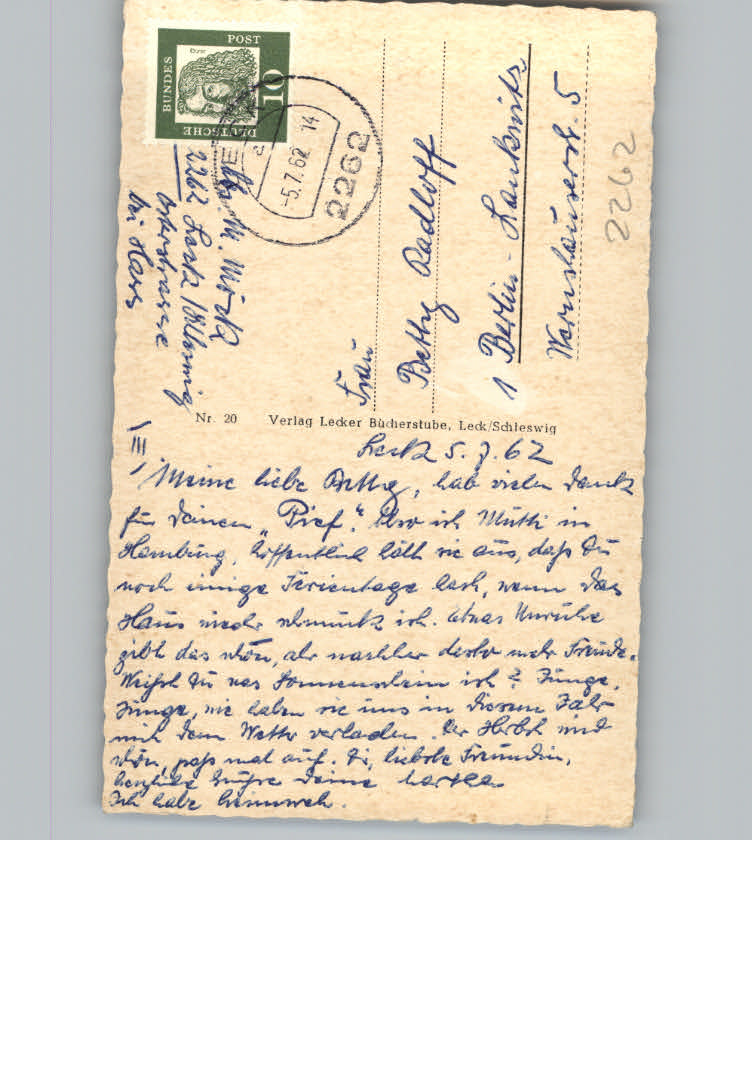 DEUTSCHE
BUNDES
POST
10
Dürer
-5.7.62-14
a
2262
2262 Leck
Osterstrasse
bei Hass
Frau
Betty Radloff
1 Berlin-Lankwitz
2262
Nr. 20 Verlag Lecker Bücherstube, Leck/Schleswig
III
Leck 5.7.62
Meine liebe Betty, hab vielen Dank
für Deinen „Brief“. Also ist Mutti in
Hamburg, hoffentlich hält sie aus, daß Du
noch einige Ferientage hast, wenn das
Haus wieder schmuck ist. etwas Unruhe
gibt das schon, aber nachher desto mehr Freude.
Weißt Du was Sonnenschein ist? Junge,
Junge, wie haben sie uns in diesem Jahr
mit dem Wetter verladen. Der Herbst wird
schön, paß mal auf. Dir, liebste Freundin,
herzliche Grüße Deine
Ich habe Heimweh.